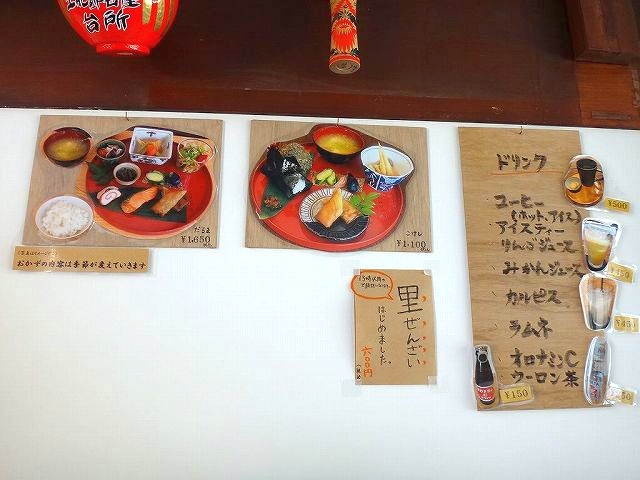 台所
だるま
¥1,650
おかずの内容は季節が変えていきます
こけし
¥1,100
里ぜんざい
はじめました。
六〇〇円
ドリンク
コーヒー
(ホット、アイス)
アイスティー
りんごジュース
みかんジュース
カルピス
ラムネ
オロナミンC
ウーロン茶
¥500
¥150